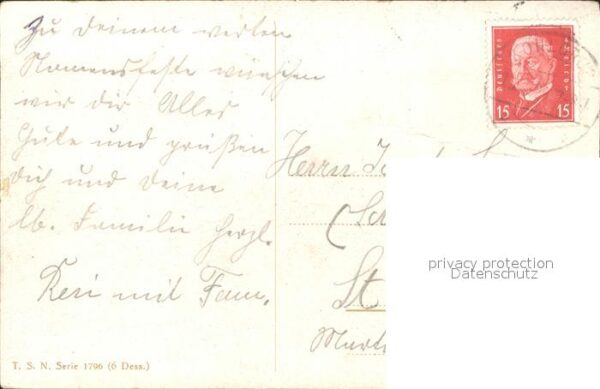 Zu Deinem werten
Namensfeste wünschen
wir dir Alles
Gute und grüßen
Dich und Deine
lb. Familie herzl.
Resi mit Fam.
T. S. N. Serie 1796 (6 Dess.)
Deutsches Reich
15 15
Herrn
St
privacy protection
Datenschutz